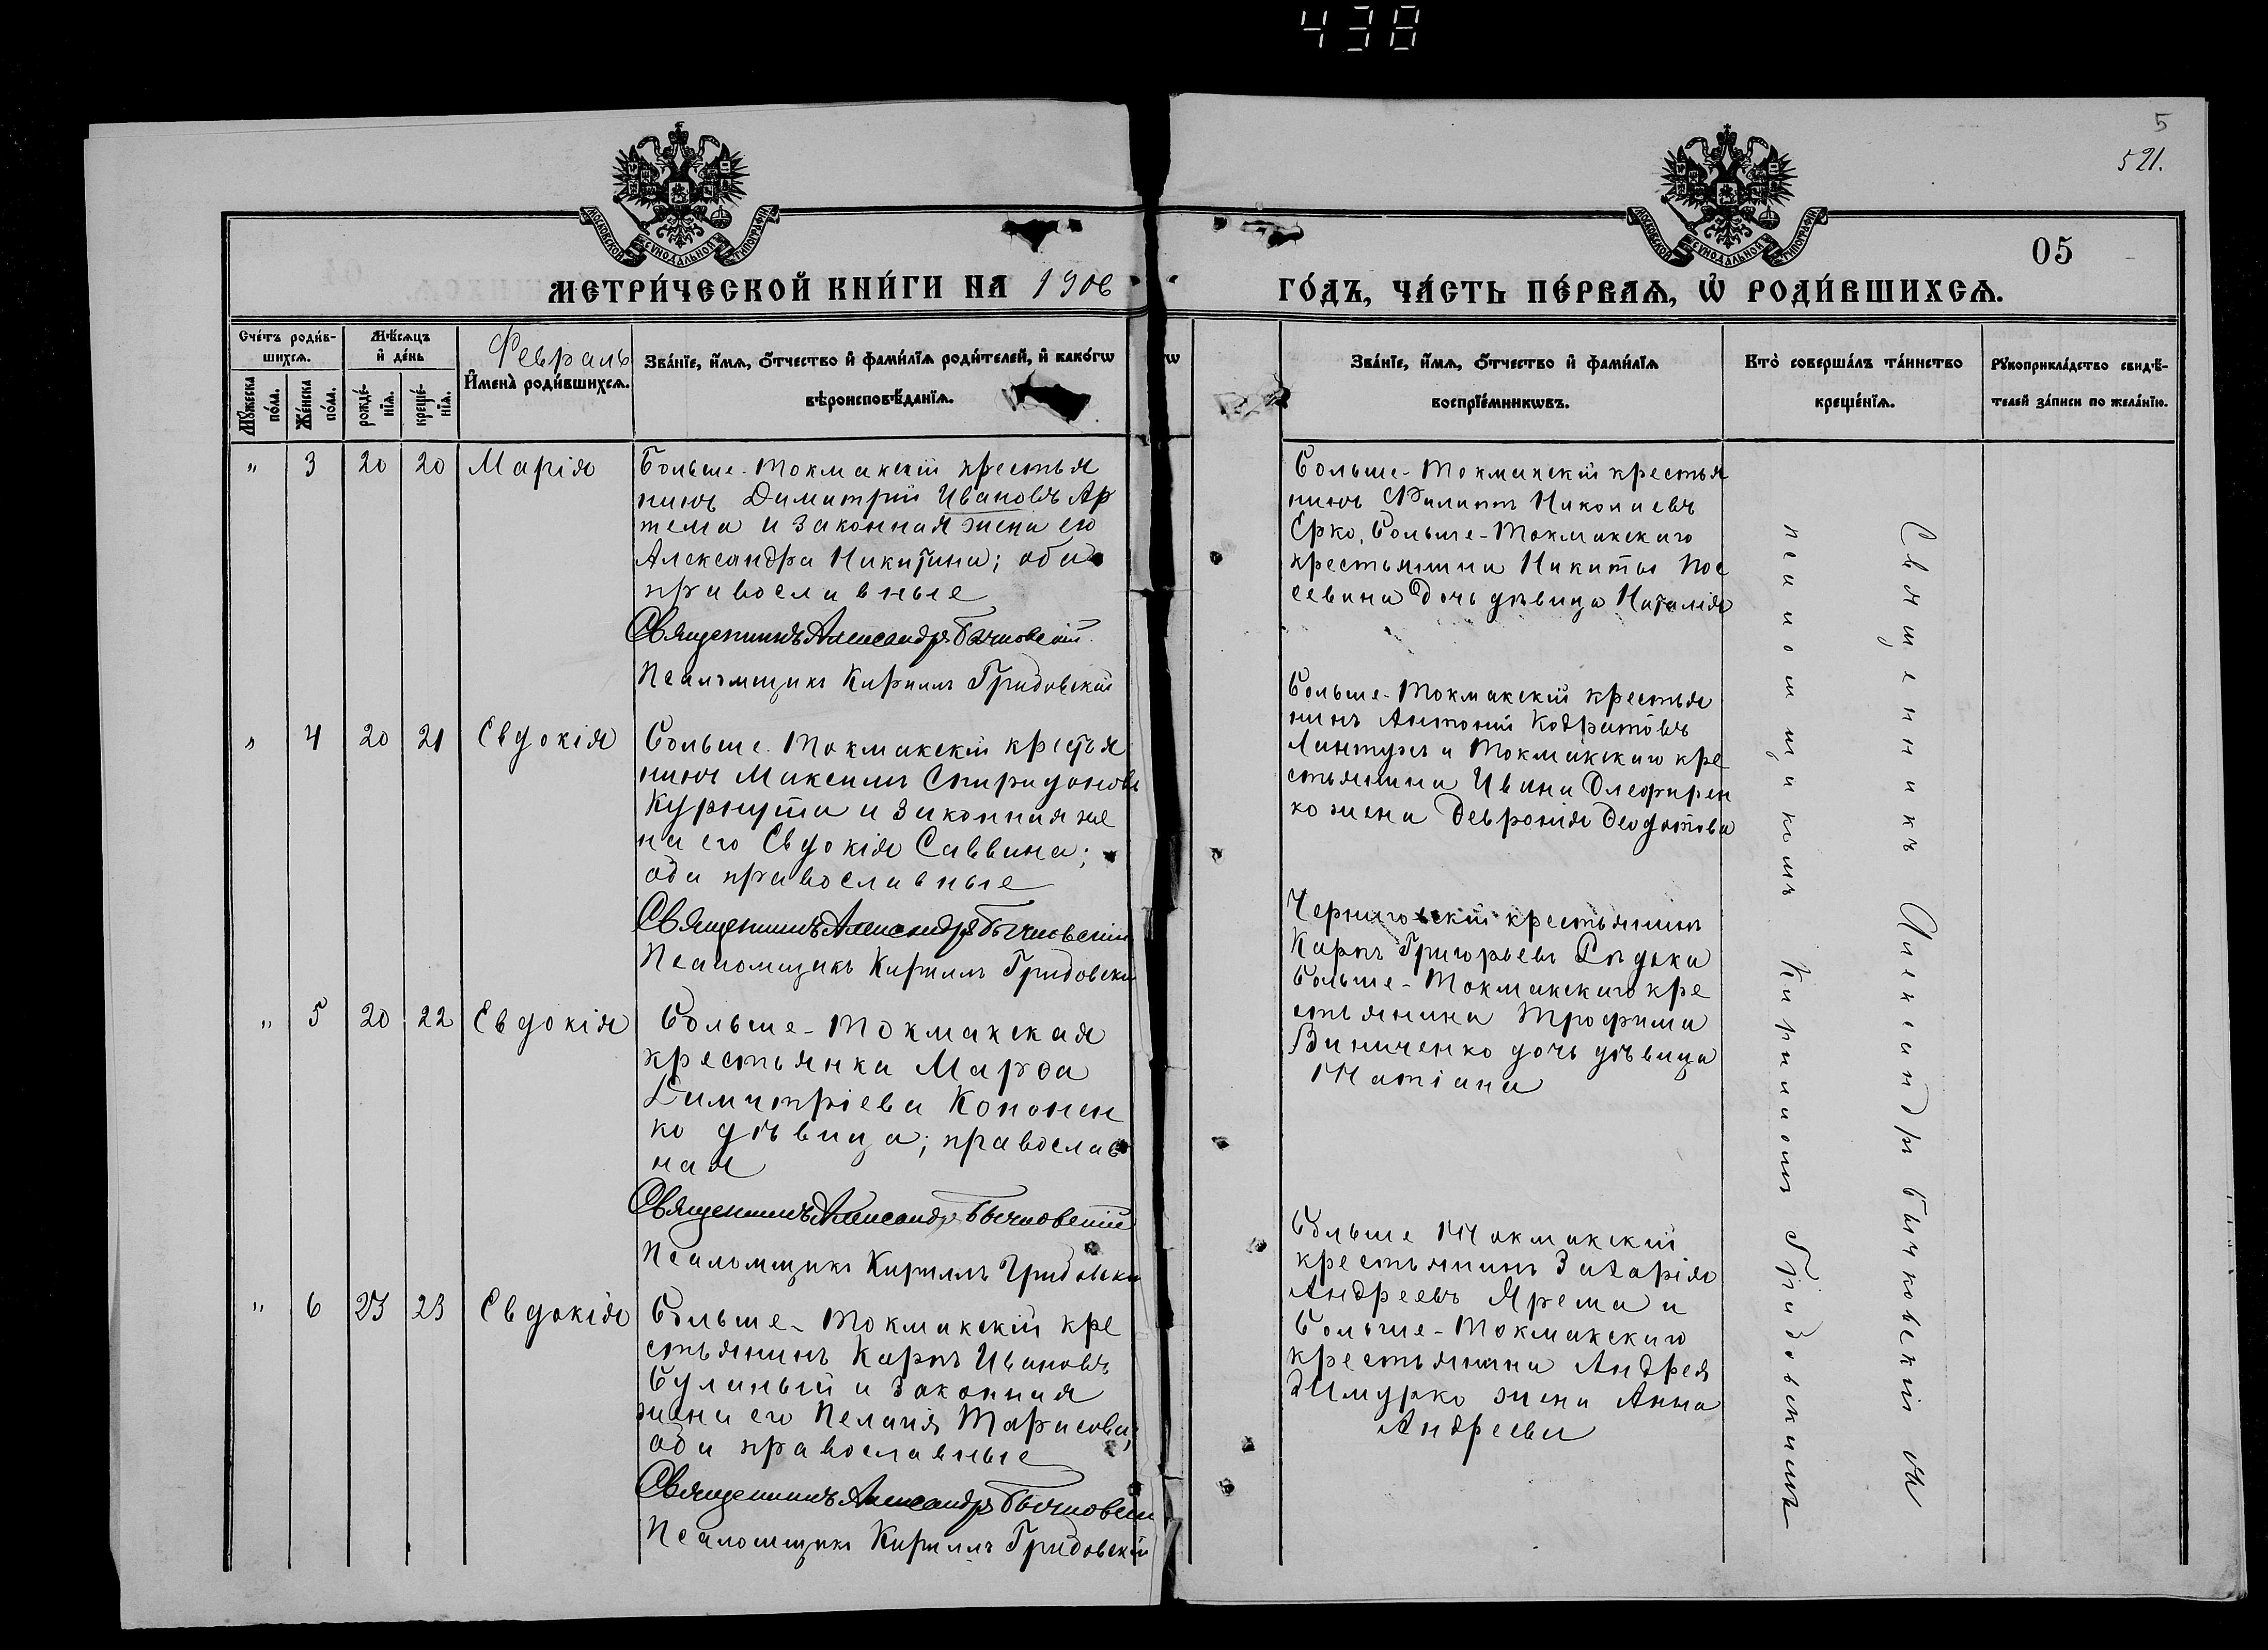 438
5
521.
05
МЕТРИ́ЧЕСКОЙ КНИ́ГИ НА 1906
ГО́ДЪ, ЧА́СТЬ ПЕ́РВАѦ, Ѡ҆ РОДИ́ВШИХСѦ.
МОСКОВСКОЙ СУНОДАЛЬНОЙ ТИПОГРАФІИ
МОСКОВСКОЙ СУНОДАЛЬНОЙ ТИПОГРАФІИ
Сче́тъ роди́в-
шихсѧ.
Мꙋ́жеска
по́ла.
Же́нска
по́ла.
Мѣ́сѧцъ
и҆ де́нь
рожде́-
нїѧ.
креще́-
нїѧ.
Февраль
И҆мена̀ роди́вшихсѧ.
Зва́нїе, и҆́мѧ, ѻ҆́тчество и҆ фами́лїѧ роди́телей, и҆ како́гѡ
вѣроисповѣ́данїѧ.
Зва́нїе, и҆́мѧ, ѻ҆́тчество и҆ фами́лїѧ
воспрїе́мникѡвъ.
Кто̀ соверша́лъ та́инство
креще́нїѧ.
Рꙋкоприкла́дство свидѣ́-
телей за́писи по жела́нїю.
" 3 20 20 Марія
Больше-Токмакскій крестья
нинъ Димитрій Ивановъ Ар
тема и законная жена его
Александра Никитина; оба
православные
Священникъ Александръ Бычковскій
Псаломщикъ Кириллъ Гридовскій
Больше-Токмакскій крестья
нинъ Филиппъ Николаевъ
Ерко, Больше-Токмакскаго
крестьянина Никиты Мос
севина дочь дѣвица Наталія
" 4 20 21 Евдокія
Больше-Токмакскій крестья
нинъ Максимъ Спиридоновъ
Курпута и законная же
на его Евдокія Саввина;
оба православные
Священникъ Александръ Бычковскій
Псаломщикъ Кириллъ Гридовскій
Больше-Токмакскій крестья
нинъ Антоній Кодратовъ
и Токмакскаго кре
стьянина Ивана Олефирен
ко жена Феодотова
" 5 20 22 Евдокія
Больше-Токмакская
крестьянка Марѳа
Димитріева Кононен
ко дѣвица; православ
ная
Священникъ Александръ Бычковскій
Псаломщикъ Кириллъ Гридовскій
Черниговскій крестьянинъ
Карпъ Григорьевъ Рѣдька
Больше-Токмакскаго кре
стьянина Трофима
Виниченко дочь дѣвица
Татіана
" 6 23 23 Евдокія
Больше-Токмакскій кре
стьянинъ Карпъ Ивановъ
Буланый и законная
жена его Пелагія Тарасова;
оба православные
Священникъ Александръ Бычковскій
Псаломщикъ Кириллъ Гридовскій
Больше Токмакскій
крестьянинъ Захарія
Андреевъ Ярема и
Больше-Токмакскаго
крестьянина Андрея
жена Анна
Андреева
Священникъ Александръ Бычковскій съ
псаломщикомъ Кирилломъ Гридовскимъ